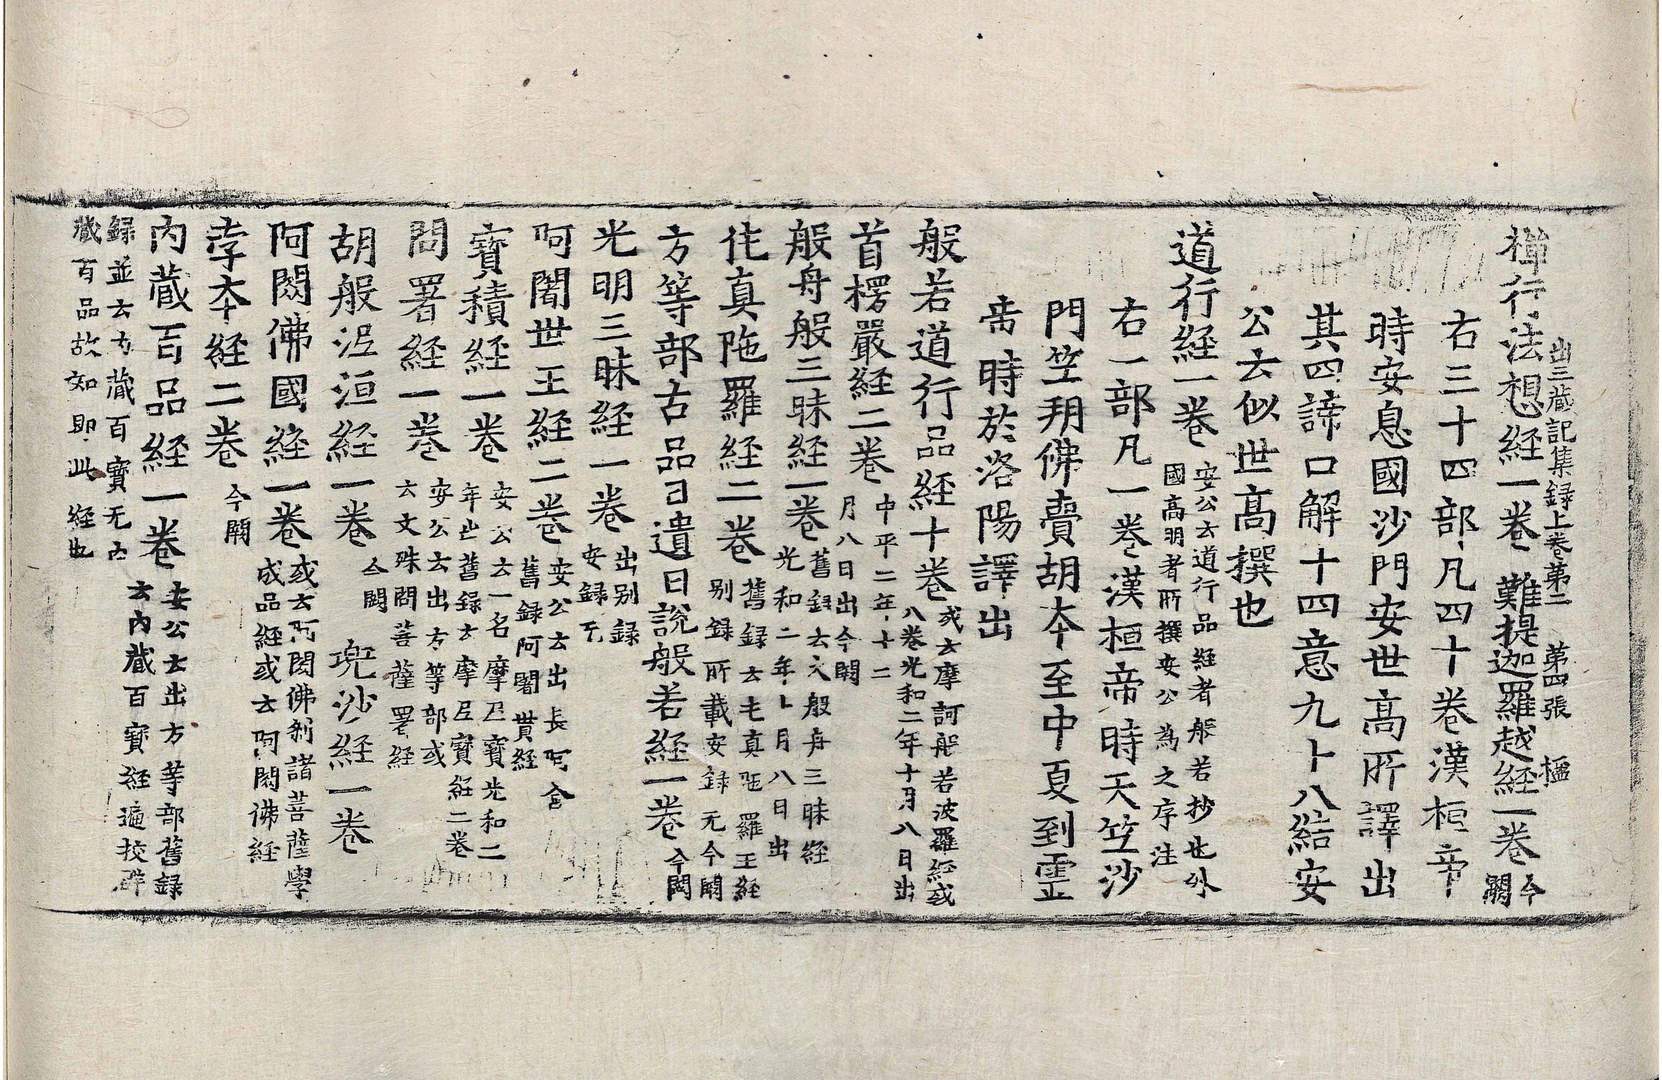 出三藏記集録上卷第二 第四張 楹
禪行法想経一卷 難提迦羅越経一卷 今闕
右三十四部凡四十卷漢桓帝
時安息國沙門安世高所譯出
其四諦口解十四意九十八結安
公云似世髙撰也
道行経一卷 安公云道行品経者般若抄也外國高明者所撰安公為之序注
右一部凡一卷漢桓帝時天竺沙
門竺朔佛賣胡本至中夏到靈
帝時於洛陽譯出
般若道行品経十卷 或云摩訶般若波羅経或八卷光和二年十月八日出
首楞嚴経二卷 中平二年十二月八日出今闕
般舟般三昧経一卷 舊録云大般舟三昧経光和二年十月八日出
伅真陁羅経二卷 舊録云屯真陁羅王経别録所載安録无今闕
方等部古品曰遺日説般若経一卷 今闕
光明三昧経一卷 出别録安録无
阿闍世王経二卷 安公云出長阿含舊録阿闍貰経
寶積経一卷 安公云一名摩尼寳光和二年出舊録云摩尼寳経二卷
問署経一卷 安公云出方等部或云文殊問菩薩署経
胡般泥洹経一卷 今闕 兜沙経一卷
阿閦佛國経一卷 或云阿閦佛剎諸菩薩學成品経或云阿閦佛経
孛本経二卷 今闕
内藏百品経一卷 安公云出方等部舊録云内藏百寳経遍挍群
録並云内藏百寳无内
藏百品故知即此経也